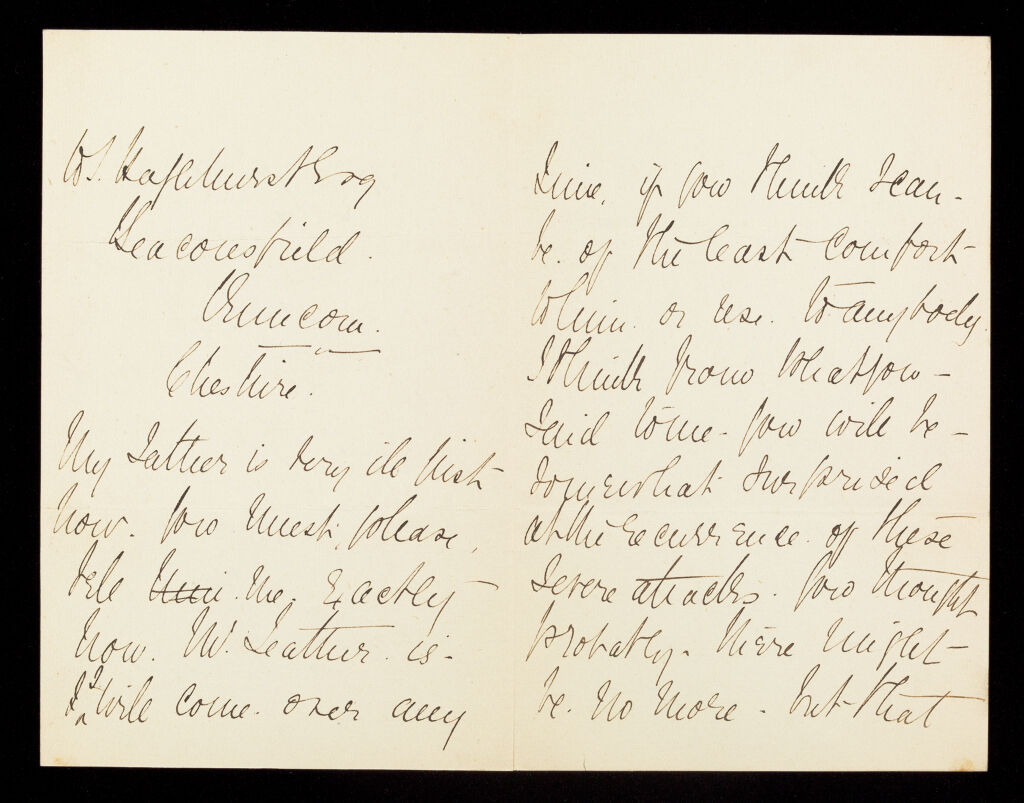 W.S. Hazlehurst Esq
Beaconsfield.
Runcorn.
Cheshire.
My Father is very ill just
now. you must, please,
tell me. Exactly
how. Mr. Leather. is.
& I will come. over any
time. if you think I can
be. of the least comfort
to him. or use. to anybody.
I think from what you
said to me. you will be
somewhat surprised
at the recurrence. of these
severe attacks. you thought
probably. there might
be. no more. but that